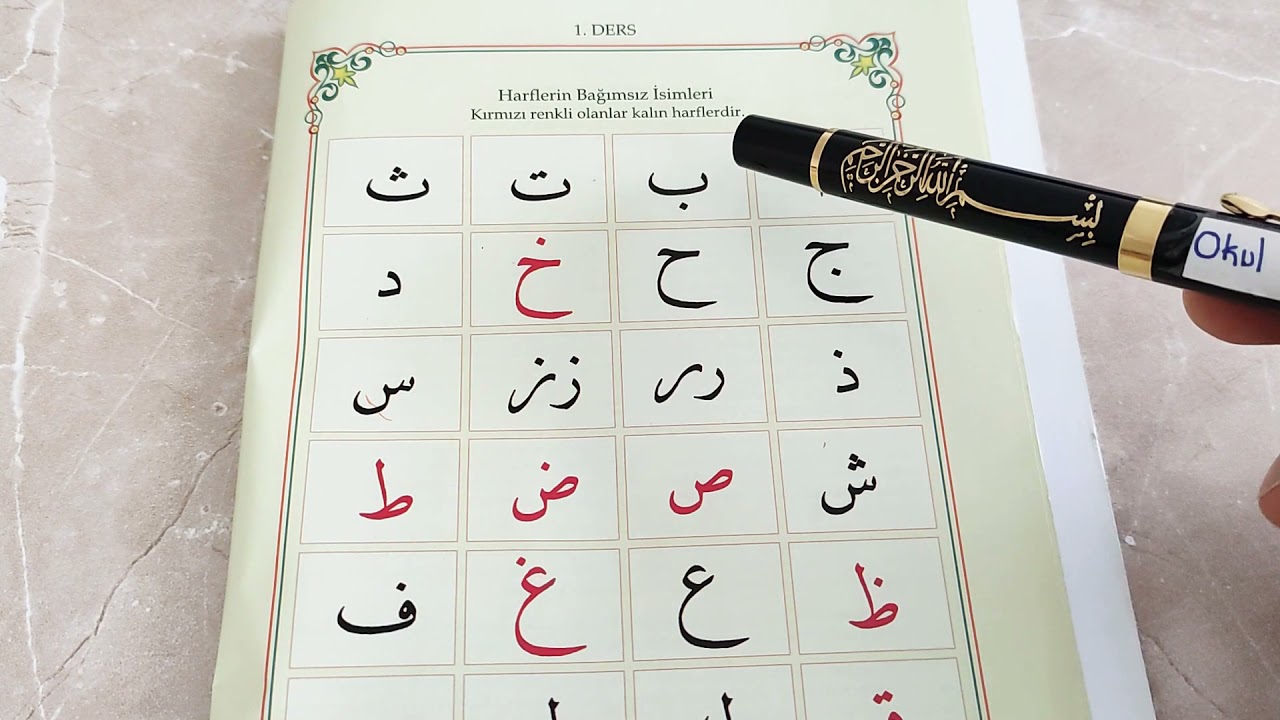 1. DERS
Harflerin Bağımsız İsimleri
Kırmızı renkli olanlar kalın harflerdir.
ب ت ث
ج ح خ د
ذ رر زز س
ش ص ض ط
ظ ع غ ف
بِسْمِ اللَّهِ الرَّحْمَٰنِ الرَّحِيمِ
Okul